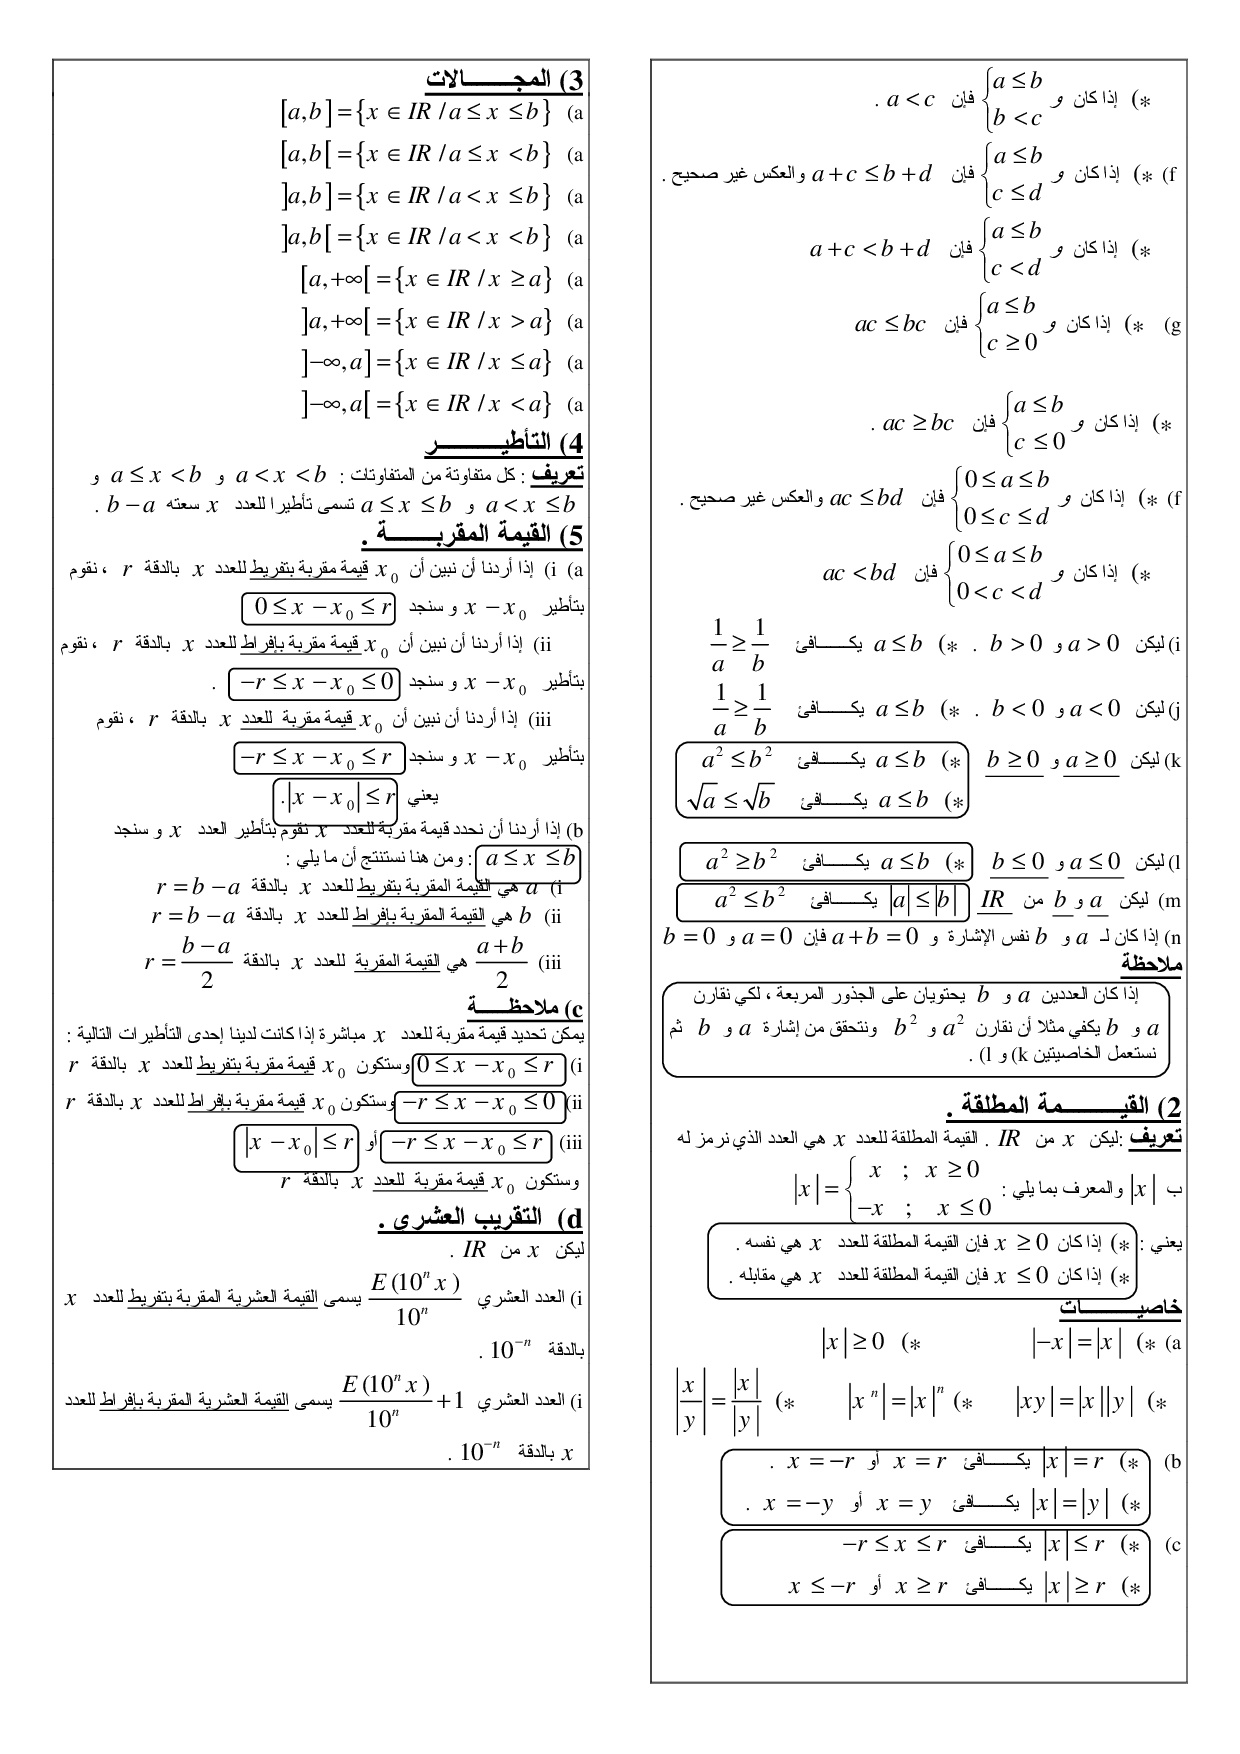 *) إذا كان و $\begin{cases} a \leq b \\ b < c \end{cases}$ فإن $a < c$ .
f) *) إذا كان و $\begin{cases} a \leq b \\ c \leq d \end{cases}$ فإن $a+c \leq b+d$ والعكس غير صحيح .
*) إذا كان و $\begin{cases} a \leq b \\ c < d \end{cases}$ فإن $a+c < b+d$
g) *) إذا كان و $\begin{cases} a \leq b \\ c \geq 0 \end{cases}$ فإن $ac \leq bc$
*) إذا كان و $\begin{cases} a \leq b \\ c \leq 0 \end{cases}$ فإن $ac \geq bc$ .
f) *) إذا كان و $\begin{cases} 0 \leq a \leq b \\ 0 \leq c \leq d \end{cases}$ فإن $ac \leq bd$ والعكس غير صحيح .
*) إذا كان و $\begin{cases} 0 \leq a \leq b \\ 0 < c < d \end{cases}$ فإن $ac < bd$
i) ليكن $a > 0$ و $b > 0$ . *) $a \leq b$ يكـــافئ $\frac{1}{a} \geq \frac{1}{b}$
j) ليكن $a < 0$ و $b < 0$ . *) $a \leq b$ يكـــافئ $\frac{1}{a} \geq \frac{1}{b}$
k) ليكن $a \geq 0$ و $b \geq 0$ *) $a \leq b$ يكـــافئ $a^2 \leq b^2$
*) $a \leq b$ يكـــافئ $\sqrt{a} \leq \sqrt{b}$
l) ليكن $a \leq 0$ و $b \leq 0$ *) $a \leq b$ يكـــافئ $a^2 \geq b^2$
m) ليكن $a$ و $b$ من $IR$ $|a| \leq |b|$ يكـــافئ $a^2 \leq b^2$
n) إذا كان لـ $a$ و $b$ نفس الإشارة و $a+b=0$ فإن $a=0$ و $b=0$
ملاحظة
إذا كان العددين $a$ و $b$ يحتويان على الجذور المربعة ، لكي نقارن
$a$ و $b$ يكفي مثلا أن نقارن $a^2$ و $b^2$ ونتحقق من إشارة $a$ و $b$ ثم
نستعمل الخاصيتين k) و l) .
2) القيـــــمة المطلقة .
تعريف :ليكن $x$ من $IR$ . القيمة المطلقة للعدد $x$ هي العدد الذي نرمز له
ب $|x|$ والمعرف بما يلي : $|x| = \begin{cases} x \; ; \; x \geq 0 \\ -x \; ; \; x \leq 0 \end{cases}$
يعني : *) إذا كان $x \geq 0$ فإن القيمة المطلقة للعدد $x$ هي نفسه .
*) إذا كان $x \leq 0$ فإن القيمة المطلقة للعدد $x$ هي مقابله .
خاصيـــــات
a) *) $|-x| = |x|$ *) $|x| \geq 0$
*) $|xy| = |x||y|$ *) $|x^n| = |x|^n$ *) $\left|\frac{x}{y}\right| = \frac{|x|}{|y|}$
b) *) $|x| = r$ يكـــافئ $x = r$ أو $x = -r$ .
*) $|x| = |y|$ يكـــافئ $x = y$ أو $x = -y$ .
c) *) $|x| \leq r$ يكـــافئ $-r \leq x \leq r$
*) $|x| \geq r$ يكـــافئ $x \geq r$ أو $x \leq -r$
3) المجـــــالات
a) $[a,b] = \{x \in IR / a \leq x \leq b\}$
a) $[a,b[ = \{x \in IR / a \leq x < b\}$
a) $]a,b] = \{x \in IR / a < x \leq b\}$
a) $]a,b[ = \{x \in IR / a < x < b\}$
a) $[a,+\infty[ = \{x \in IR / x \geq a\}$
a) $]a,+\infty[ = \{x \in IR / x > a\}$
a) $]-\infty,a] = \{x \in IR / x \leq a\}$
a) $]-\infty,a[ = \{x \in IR / x < a\}$
4) التأطيـــــر
تعريف : كل متفاوتة من المتفاوتات : $a < x < b$ و $a \leq x < b$ و
$a < x \leq b$ و $a \leq x \leq b$ تسمى تأطيرا للعدد $x$ سعته $b-a$ .
5) القيمة المقربـــــة .
a) i) إذا أردنا أن نبين أن $x_0$ قيمة مقربة بتفريط للعدد $x$ بالدقة $r$ ، نقوم
بتأطير $x - x_0$ و سنجد $0 \leq x - x_0 \leq r$
ii) إذا أردنا أن نبين أن $x_0$ قيمة مقربة بإفراط للعدد $x$ بالدقة $r$ ، نقوم
بتأطير $x - x_0$ و سنجد $-r \leq x - x_0 \leq 0$ .
iii) إذا أردنا أن نبين أن $x_0$ قيمة مقربة للعدد $x$ بالدقة $r$ ، نقوم
بتأطير $x - x_0$ و سنجد $-r \leq x - x_0 \leq r$
يعني $|x - x_0| \leq r$ .
b) إذا أردنا أن نحدد قيمة مقربة للعدد $x$ نقوم بتأطير العدد $x$ و سنجد
$a \leq x \leq b$ : ومن هنا نستنتج أن ما يلي :
i) $a$ هي القيمة المقربة بتفريط للعدد $x$ بالدقة $r = b-a$
ii) $b$ هي القيمة المقربة بإفراط للعدد $x$ بالدقة $r = b-a$
iii) $\frac{a+b}{2}$ هي القيمة المقربة للعدد $x$ بالدقة $r = \frac{b-a}{2}$
c) ملاحظـــــة
يمكن تحديد قيمة مقربة للعدد $x$ مباشرة إذا كانت لدينا إحدى التأطيرات التالية :
i) $0 \leq x - x_0 \leq r$ وستكون $x_0$ قيمة مقربة بتفريط للعدد $x$ بالدقة $r$
ii) $-r \leq x - x_0 \leq 0$ وستكون $x_0$ قيمة مقربة بإفراط للعدد $x$ بالدقة $r$
iii) $-r \leq x - x_0 \leq r$ أو $|x - x_0| \leq r$
وستكون $x_0$ قيمة مقربة للعدد $x$ بالدقة $r$
d) التقريب العشري .
ليكن $x$ من $IR$ .
i) العدد العشري $\frac{E(10^n x)}{10^n}$ يسمى القيمة العشرية المقربة بتفريط للعدد $x$
بالدقة $10^{-n}$ .
i) العدد العشري $\frac{E(10^n x)}{10^n}+1$ يسمى القيمة العشرية المقربة بإفراط للعدد
$x$ بالدقة $10^{-n}$ .